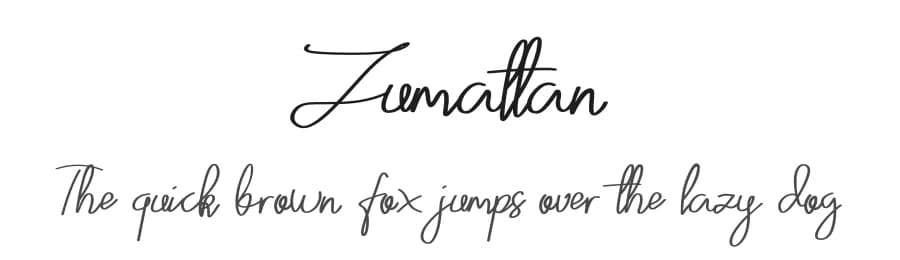 Zumattan
The quick brown fox jumps over the lazy dog